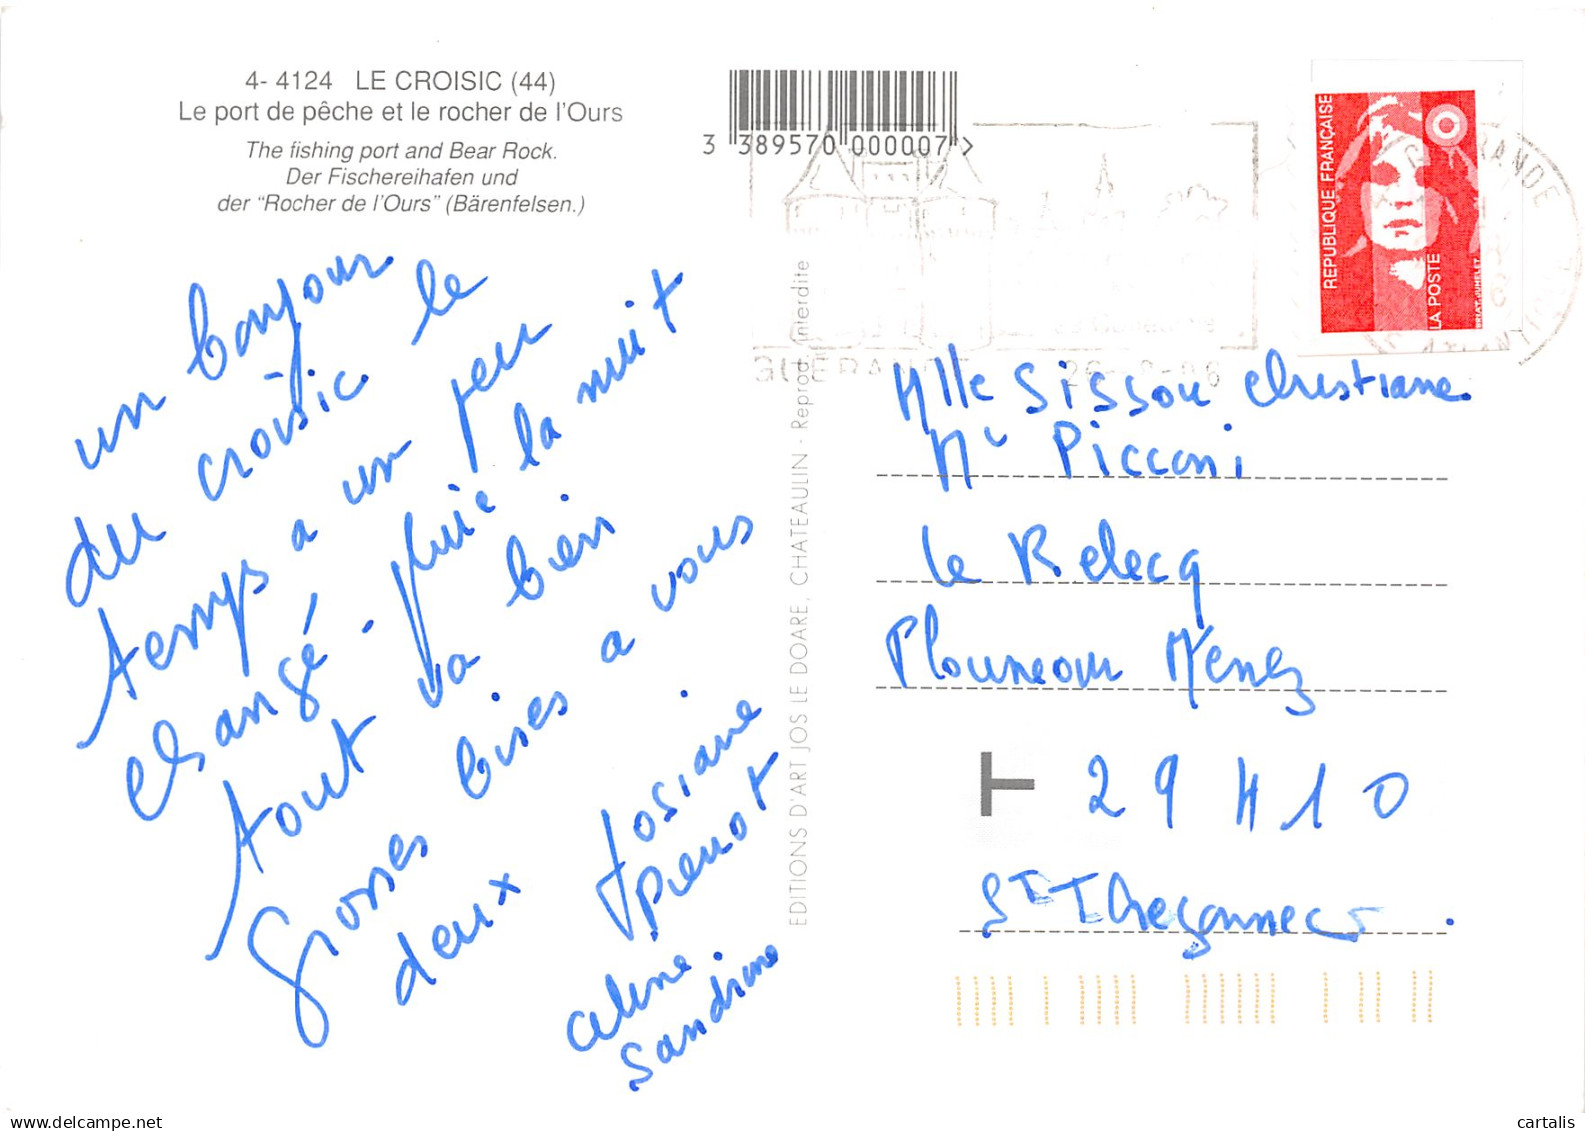 4- 4124 LE CROISIC (44)
Le port de pêche et le rocher de l'Ours
The fishing port and Bear Rock.
Der Fischereihafen und
der "Rocher de l'Ours" (Bärenfelsen.)
3 389570 000007
un bonjour
du croisic le
temps a un peu
changé. pluie la nuit
tout va bien
grosses bises a vous
deux
Josiane
Pierrot
celine
Sandrine
EDITIONS D'ART JOS LE DOARE, CHATEAULIN - Reprod. interdite
REPUBLIQUE FRANÇAISE
LA POSTE
BRIAT-JUMELET
GUERANDE
Mlle Sissou Christiane
Mr Picconi
le Relecq
Plouneour Menez
T 29410
St Thegonnec
cartalis